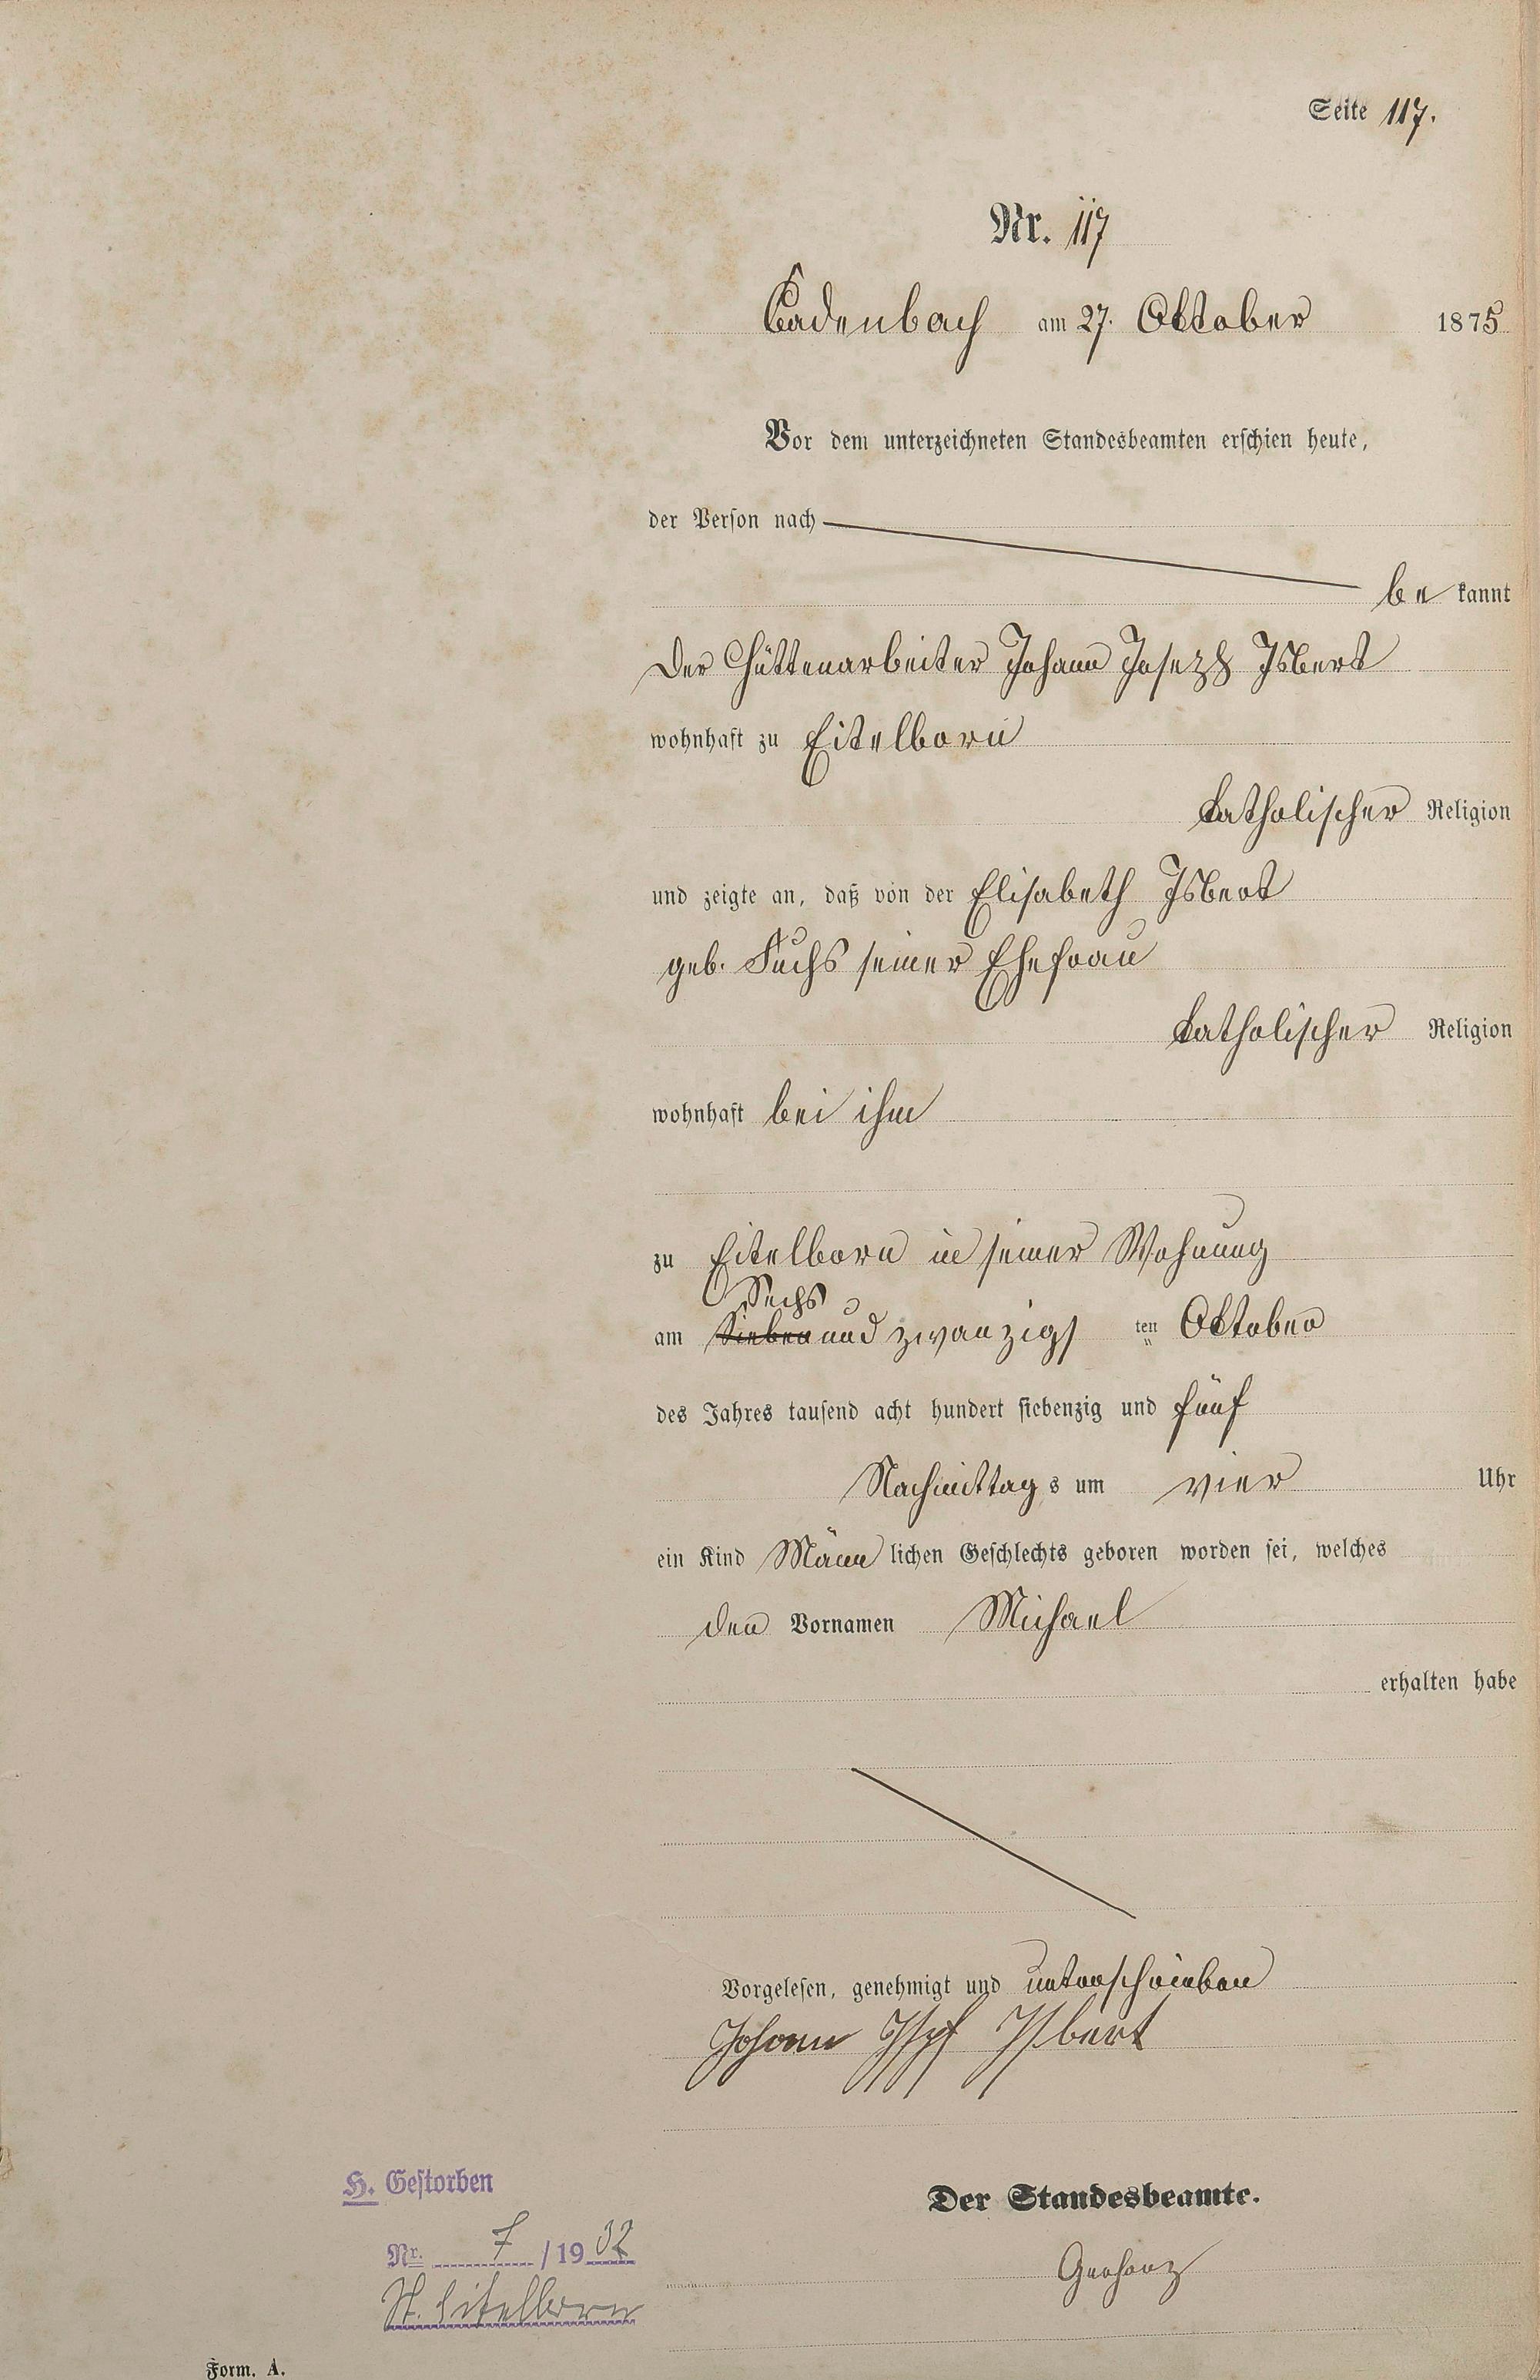 Seite 117.
Nr. 117
Cadenbach am 27. Oktober 1875
Vor dem unterzeichneten Standesbeamten erschien heute,
der Person nach
be kannt
der Hüttenarbeiter Johann Joseph Isbert
wohnhaft zu Eitelborn
katholischer Religion
und zeigte an, daß von der Elisabeth Isbert
geb. Fuchs seiner Ehefrau
katholischer Religion
wohnhaft bei ihm
zu Eitelborn in seiner Wohnung
Sechs
am Sieben und zwanzigs ten Oktober
des Jahres tausend acht hundert siebenzig und fünf
Nachmittag s um vier Uhr
ein Kind Männ lichen Geschlechts geboren worden sei, welches
den Vornamen Michael
erhalten habe
Vorgelesen, genehmigt und unterschrieben
Johann Jospf Isbert
Der Standesbeamte.
Gerharz
H. Gestorben
Nr. 7 / 19 32
St. Eitelborn
Form. A.